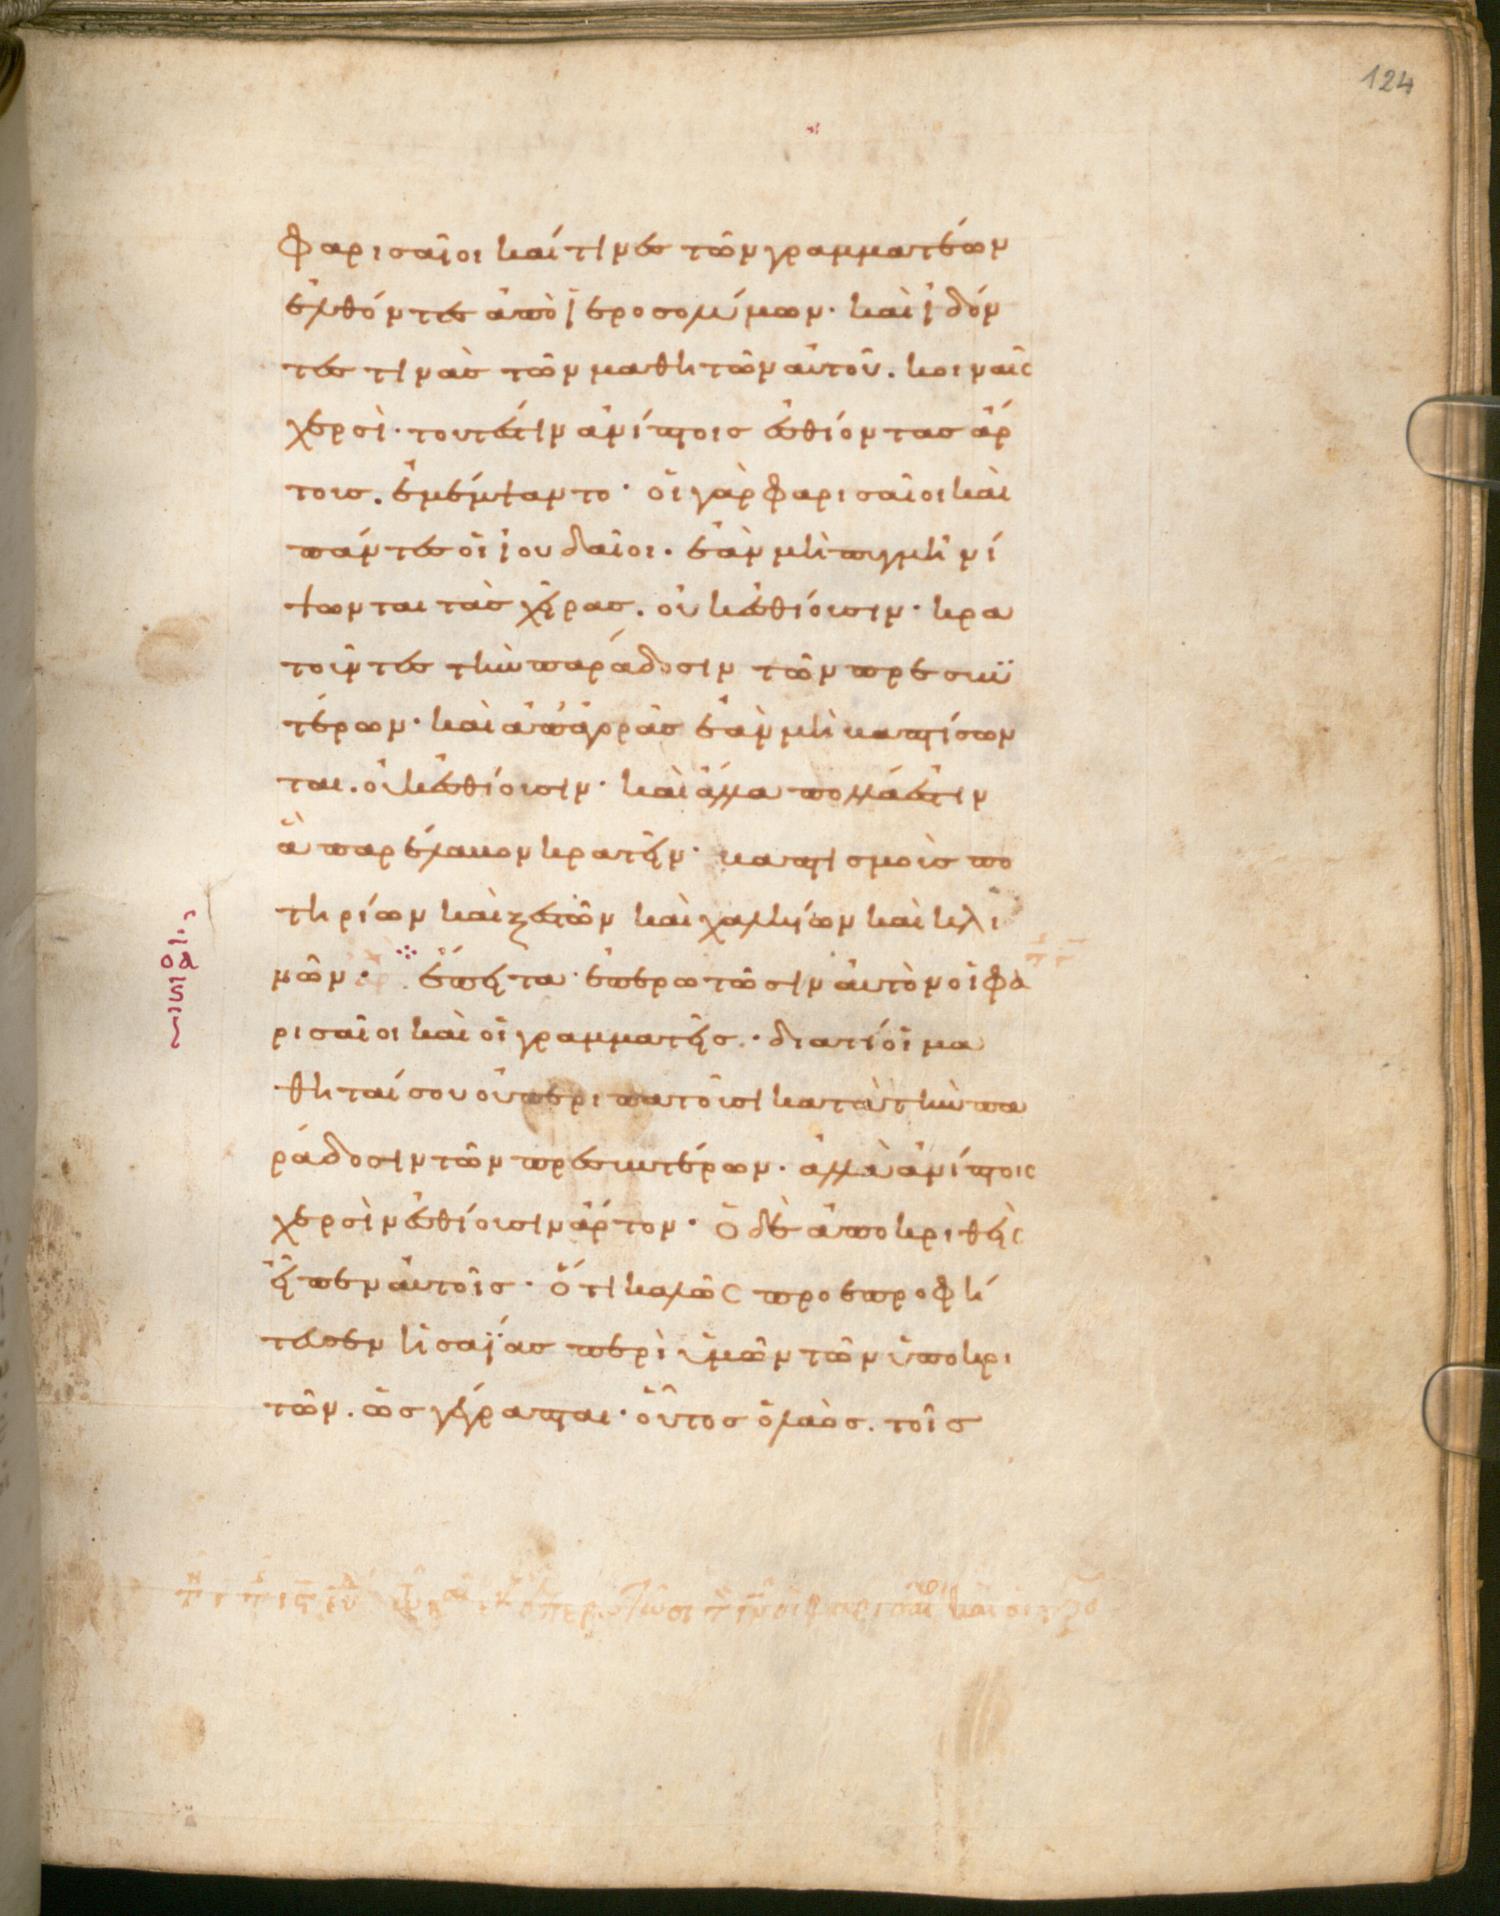 124
φαρισαῖοι καί τινες τῶν γραμματέων
ἐλθόντες ἀπὸ ἱεροσολύμων· καὶ ἰδόν
τες τινὰς τῶν μαθητῶν αὐτοῦ. κοιναῖς
χερσὶ· τουτέστιν ἀνίπτοις ἐσθίοντας ἄρ
τους. ἐμέμψαντο· οἱ γὰρ φαρισαῖοι καὶ
πάντες οἱ ἰουδαῖοι. ἐὰν μὴ πυγμῆ νί
ψωνται τὰς χεῖρας. οὐκ ἐσθίουσιν· κρα
τοῦντες τὴν παράδοσιν τῶν πρεσβυ
τέρων· καὶ ἀπὸ ἀγορᾶς ἐὰν μὴ βαπτίσων
ται. οὐκ ἐσθίουσιν· καὶ ἄλλα πολλά ἐστιν
ἃ παρέλαβον κρατεῖν· βαπτισμοὺς πο
τηρίων καὶ ξεστῶν καὶ χαλκίων καὶ κλι
νῶν· ἔπειτα ἐπερωτῶσιν αὐτὸν οἱ φα
ρισαῖοι καὶ οἱ γραμματεῖς· διατί οἱ μα
θηταί σου οὐ περιπατοῦσι κατὰ τὴν πα
ράδοσιν τῶν πρεσβυτέρων. ἀλλὰ ἀνίπτοις
χερσὶν ἐσθίουσιν ἄρτον· ὁ δὲ ἀποκριθεὶς
εἶπεν αὐτοῖς· ὅτι καλῶς προεπροφή
τευσεν ἡσαΐας περὶ ὑμῶν τῶν ὑποκρι
τῶν. ὡς γέγραπται· οὗτος ὁ λαὸς. τοῖς